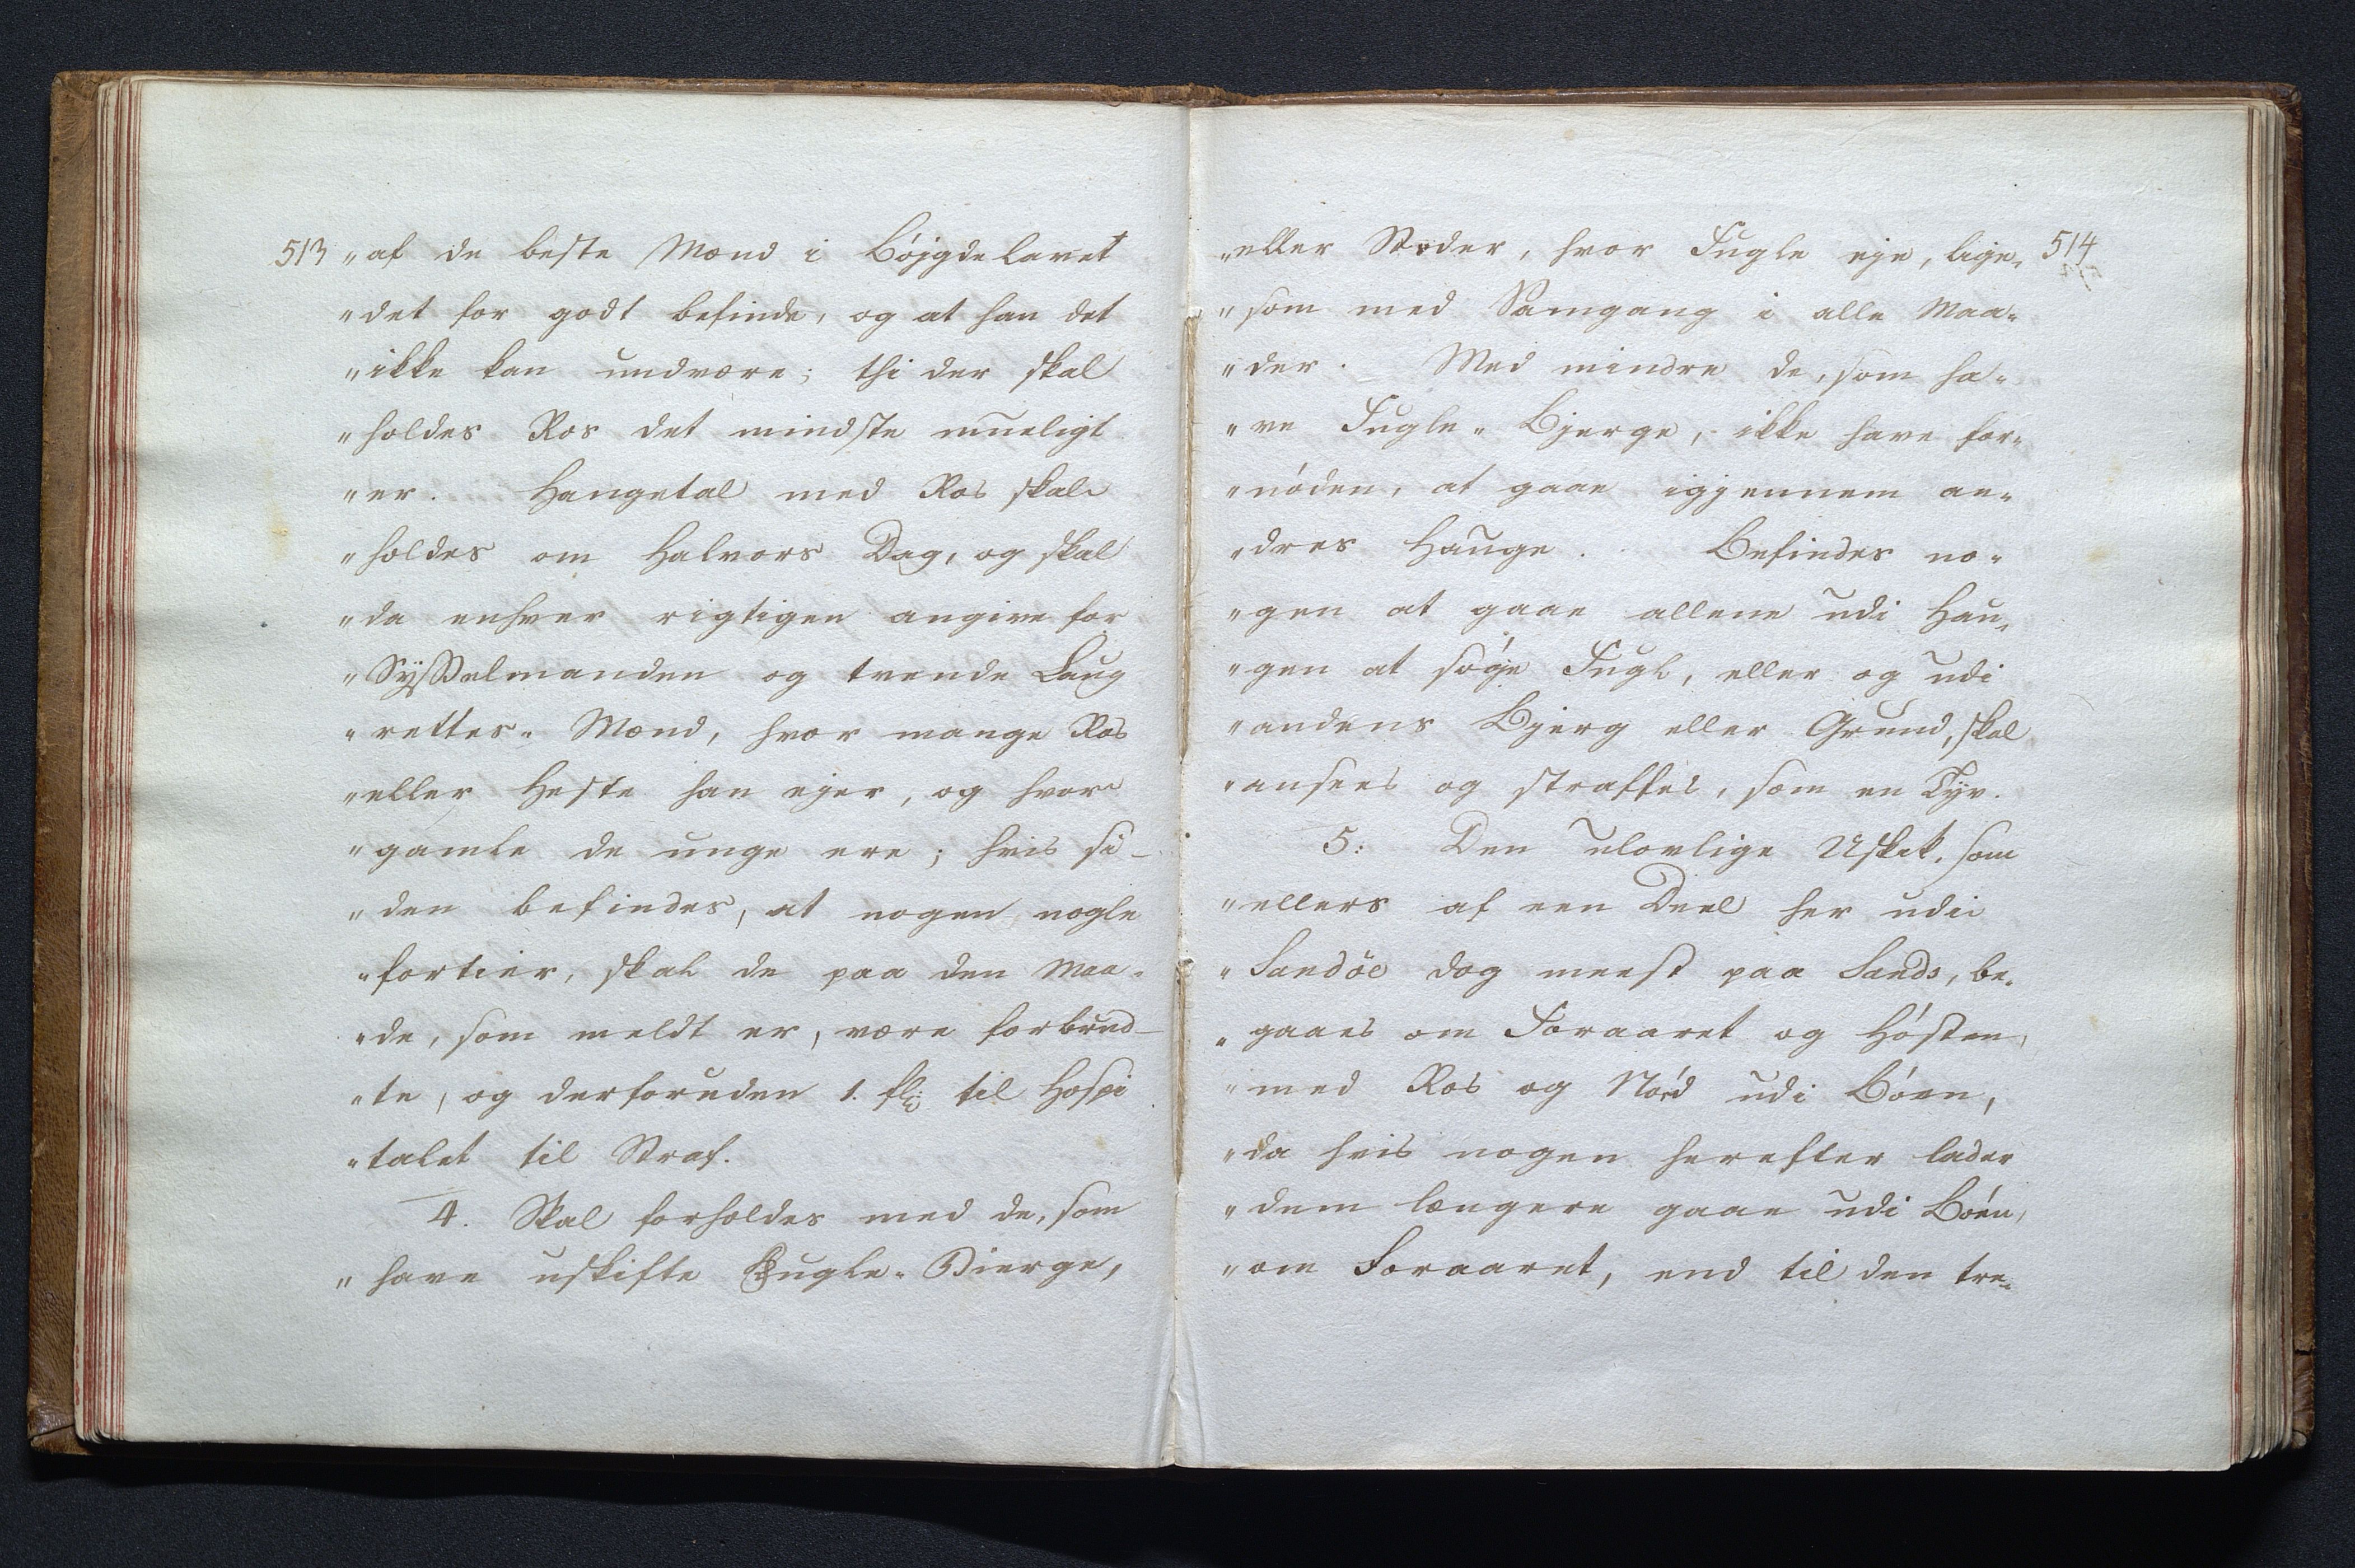 513 „af de beste Mænd i Böjgdelavet
„det for godt befinde, og at han det
„ikke kan undvære; thi der skal
„holdes Ros det mindste mueligt
„er. Hangetal med Ros skal
„holdes om Halvors Dag, og skal
„da enhver rigtigen angive for
„Sysselmanden og trende Laug
„rettes„ Mænd, hvor mange Ros
„eller Heste han ejer, og hvor
„gamle de unge ere; hvis si-
„den befindes, at nogen nogle
„fortier, skal de paa den Maa„
„de, som meldt er, være forbrud-
„te, og derforuden 1. til Hospi
„talet til Straf.
4. Skal forholdes med de, som
„have uskifte Fugle„ Bierge,
„eller Stæder, hvor Fugle eje, lige„ 514
„som med Samgang i alle Maa„
„der. Med mindre de, som ha„
„ve Fugle„ Bjerge, ikke have for„
„nöden, at gaae igjennem an„
„dres Hauge. Befindes no„
„gen at gaae allene udi Hau„
„gen at söge Fugl, eller og udi
„andens Bjerg eller Grund, skal
„ansees og straffes, som en Tyv.
5: Den ulovlige Uskik, som
„ellers af een Deel her udi
„Sandöe dog meest paa Sands, be„
„gaaes om Foraaret og Hösten,
„med Ros og Nöd udi Böen,
„da hvis nogen herefter lader
„dem længere gaae udi Böen,
„om Foraaret, end til den tre„